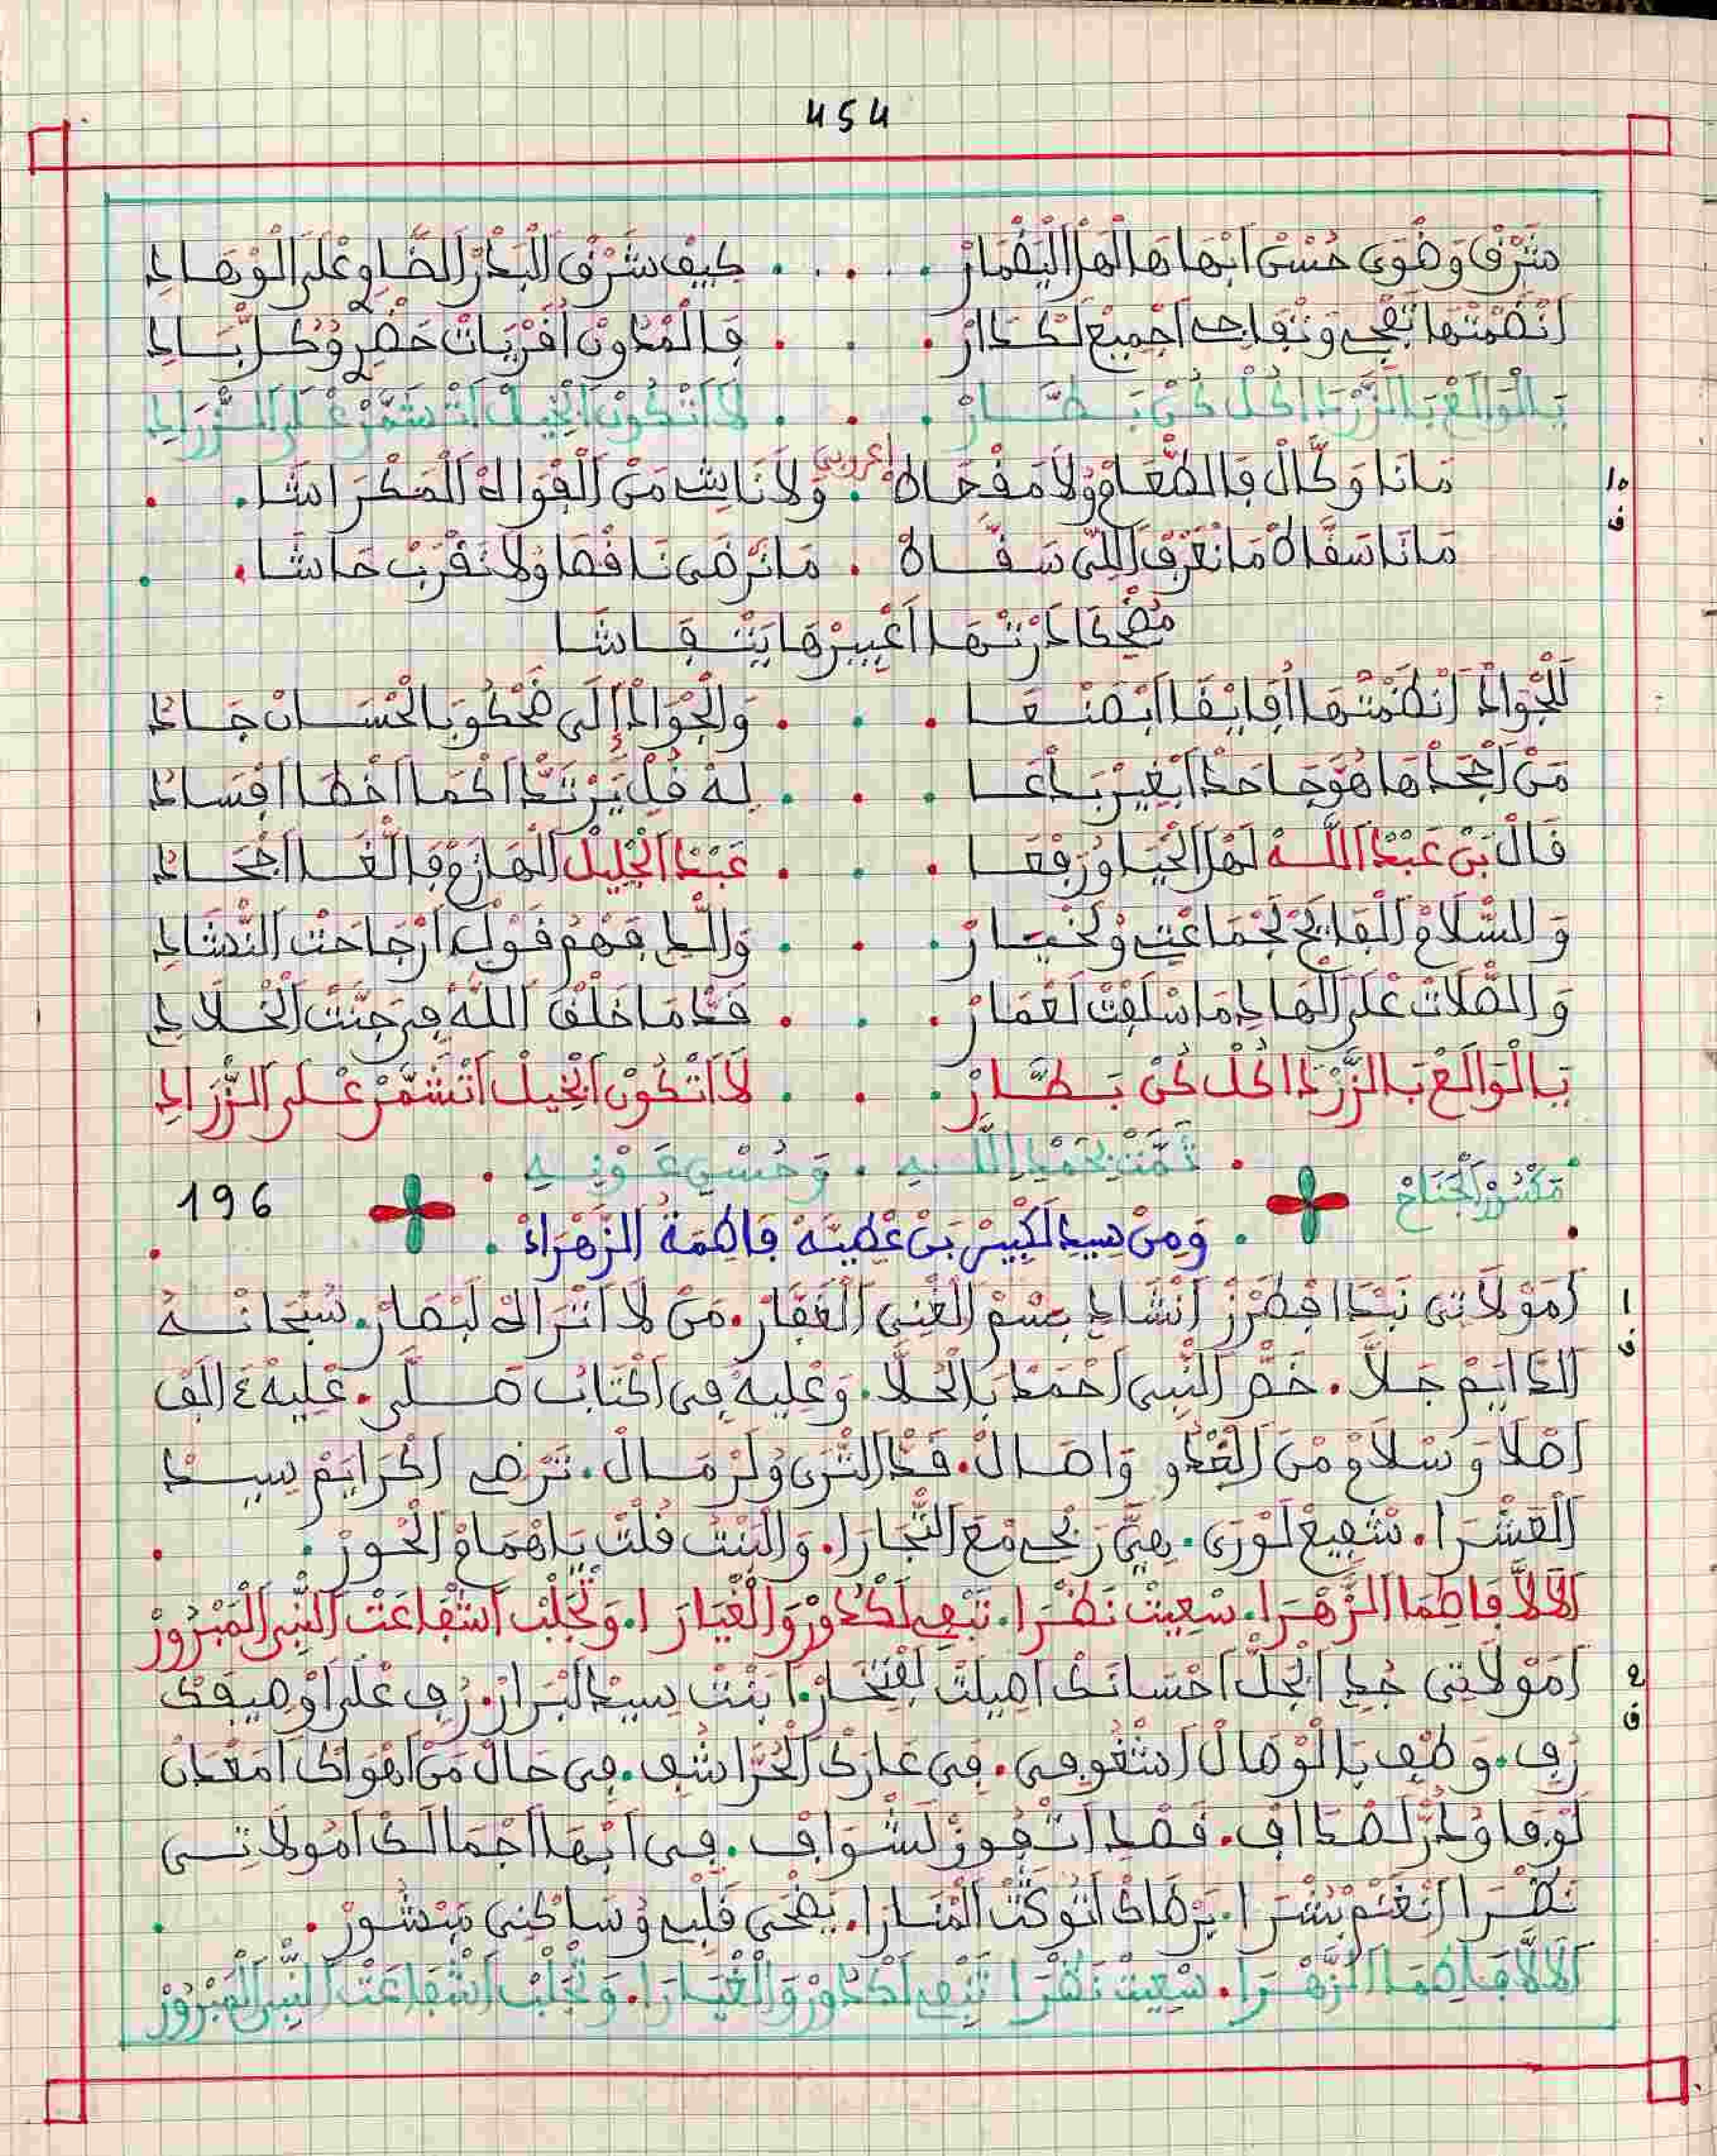 454
شَرْقْ وَضْوَى حُسْنْ ابْهَاهَا الْهَلْ الِيقْمَارْ . . . . كِيفْ شَرْقْ الْبَدْرْ الضَّاوِي عْلَى الَوْهَادِ
انْضَمْتْهَا تَفْجِي وَتْفَاجِي اجْمِيعْ لَكْدَارْ . . . فَالْمْدُونْ اقْرْيَاتْ حَضْرْ وُكُلّْ بَادِ
يَالْوَالَعْ بَالزَّرْدَا كُلْ كُنْ بَطَّارْ . . . لَا اتْكُونْ ابْخِيلْ اتْشَمَّرْ عْلَى الزّْرَادِ
اعْرُوبِي
10 مَانَا وَكَّالْ فَالطّْعَامْ وُلَا مَفْجَاهْ . وَلَا نَايِشْ مَنْ الْفْوَاكْ الْمَكْرَاشَا . .
ف
مَانَا سَفَّاهْ مَا نْعَرْفْ اللِّي سَفَّاهْ . مَا نَرْضَى نَافْصَا وُلَا نَقْرَبْ حَاشَا . .
لَلْجْوَادْ انْظَمْتْهَا اقَايْقَا ابْصَنْعَا . . . وَالْجْوَادْ إِلَى ضَحْكُو بَالْحْسَانْ جَادُ
مَنْ اجْحَدْهَا هُوَ جَاحَدْ ابْغِيرْ بَدْعَا . . . لَهْ قُلْ يَرْتَدّْ اكْمَا اخْطَا افْسَادُ
قَالْ بَنْ عَبْدْ اللَّهْ لَهْلْ الْحْيَا وُرَفْعَا . . . عَبْدْ الْجْلِيلْ الْهَازَمْ فَالْغَا اجْحَادُ
وَالسّْلَامْ الْفَايَحْ لَجْمَاعْتِي وُلَخْيَارْ . . . وَاللِّي فْهَمْ قَوْلِي ارْجَاحْتْ النّْشَادِ
وَالصّْلَاتْ عْلَى الْهَادِي مَا سَلْفَتْ لَعْمَارْ . . . قَدّْ مَا خَلْقْ اللَّهْ فِي جَنَّتْ الْخْلَادِ
يَالْوَالَعْ بَالزَّرْدَا كُلْ كُنْ بَطَّارْ . . . لَا اتْكُونْ ابْخِيلْ اتْشَمَّرْ عْلَى الزّْرَادِ
. تَمَّتْ بِحَمْدِ اللَّهِ . وَحُسْنِ عَوْنِهِ .
مَكْسُورْ الْجْنَاحْ
196
. وَمِنْ سِيدْ لَكْبِيرْ بَنْ عْطِيَّهْ فَاطِمَةُ الزَّهْرَاءْ .
1 أَمَوْلَاتِي نَبْدَا فْطَرْزْ انْشَادِي بِسْمْ الْغَنِي الْغَفَّارْ . مَنْ لَا اتْرَاهْ لَبْصَارْ . سُبْحَانَهُ
ف
الدَّايَمْ جَلَّا . خَصّْ النّْبِي أَحْمَدْ بَالْحُلَّا . وَعْلِيهْ فِي الْكْتَابْ صَلَّى . عْلِيهْ ءَالَفْ
اصْلَا وَسْلَامْ مْنَ الْغْدُو وَاصَالْ . قَدّْ التّْرَى وُلَرْمَالْ . تَرْضِي اكْرَايَمْ سِيدْ
الْعَشْرَا . شْفِيعْ لَوْرَى . هِيَّ رَبْحِي مْعَ التّْجَارَا . وَالْبَنْتْ قُلْتْ يَا هْمَامْ الْحْورْ . .
الَالَّا فَاطِمَا الزَّهْرَا . سْعِيتْ نَظْرَا . تَنْفِي لَكْدُورْ وَالْغْيَارَا . وَتَجْلَبْ اشْفَاعَتْ النّْبِي الْمَبْرُورْ
2 أَمَوْلَاتِي جُدِي ابْجَلّْ احْسَانَكْ اصِيلَتْ لَفْتَخَارْ . ابَنْتْ سِيدْ الَبْرَارْ . رُفِي عْلَى اوْصِيفَكْ
ف
رُفِي . وَطْفِي بَالْوْصَالْ اشْغُوفِي . فِي عَارَكْ الْحُرَّا شُفِي . فِي حَالْ مَنْ اهْوَاكْ امْعَدَنْ
لَوْفَا وُدُرّْ لَصْدَافْ . قَصْدِي اتْفُوزْ لَشْوَافْ . فِي ابْهَا اجْمَالَكْ امُولَاتِي
نَظْرَا انْغَنْمْ بُشْرَا . بَرْضَاكْ انُوكَتْ الْمْنَارَا . يَضْحَى قَلْبِي وُسَاكْنِي مَبْشُورْ . .
الَالَّا فَاطِمَا الزَّهْرَا . سْعِيتْ نَظْرَا تَنْفِي لَكْدُورْ وَالْغْيَارَا . وَتَجْلَبْ اشْفَاعَتْ النّْبِي الْمَبْرُورْ